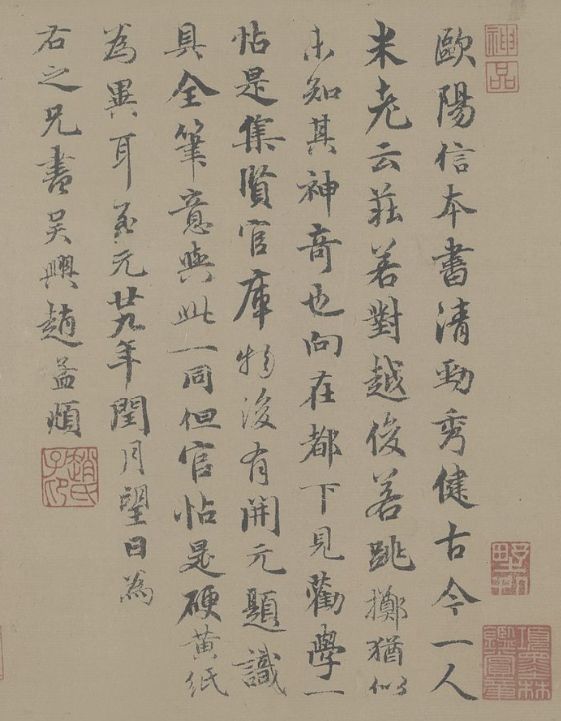 神品
歐陽信本書清勁秀健古今一人
米老云莊若對越俊若跳擲猶似
未知其神奇也向在都下見勸學一
帖是集賢官庫物後有開元題識
具全筆意與此一同但官帖是硬黄紙
為異耳至元廿九年閏月望日為
右之兄書吳興趙孟頫
趙氏子昂
項墨林鑑賞章